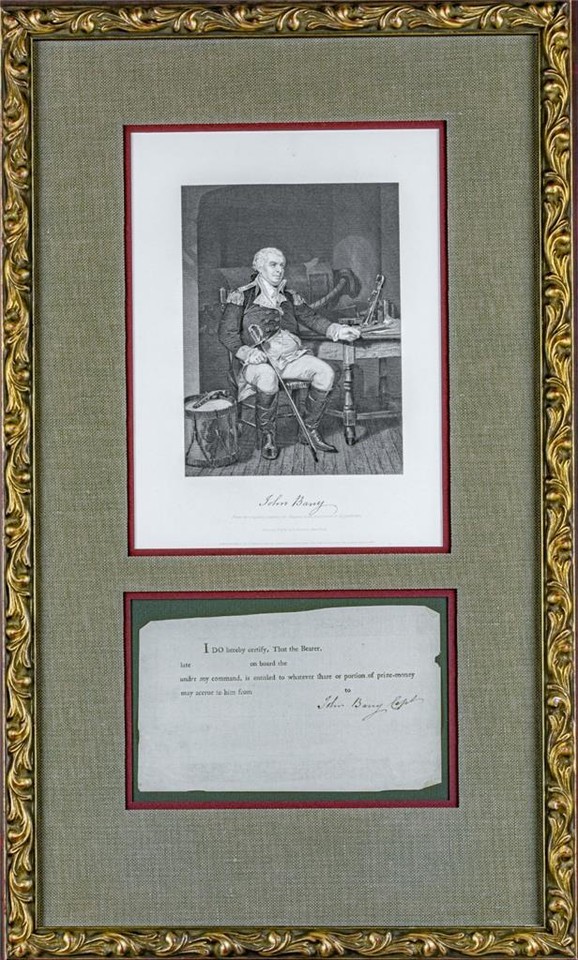 John Barry
I DO hereby certify, That the Bearer,
late on board the
under my command, is entitled to whatever share or portion of prize-money
may accrue to him from to
John Barry Capt